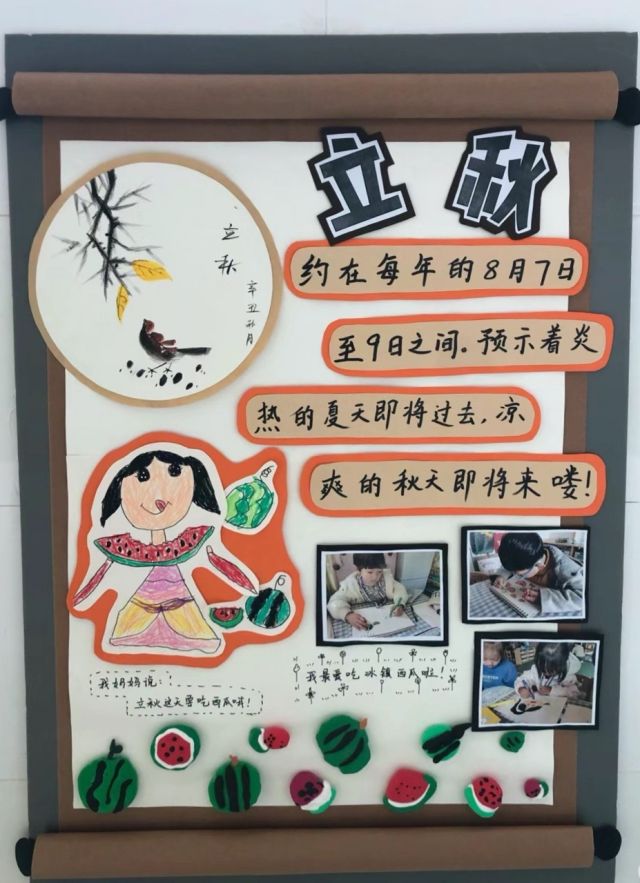 立秋
立秋
辛丑秋月
约在每年的8月7日
至9日之间。预示着炎
热的夏天即将过去,凉
爽的秋天即将来喽!
我妈妈说:
立秋这天要吃西瓜哦!
我最爱吃冰镇西瓜啦!